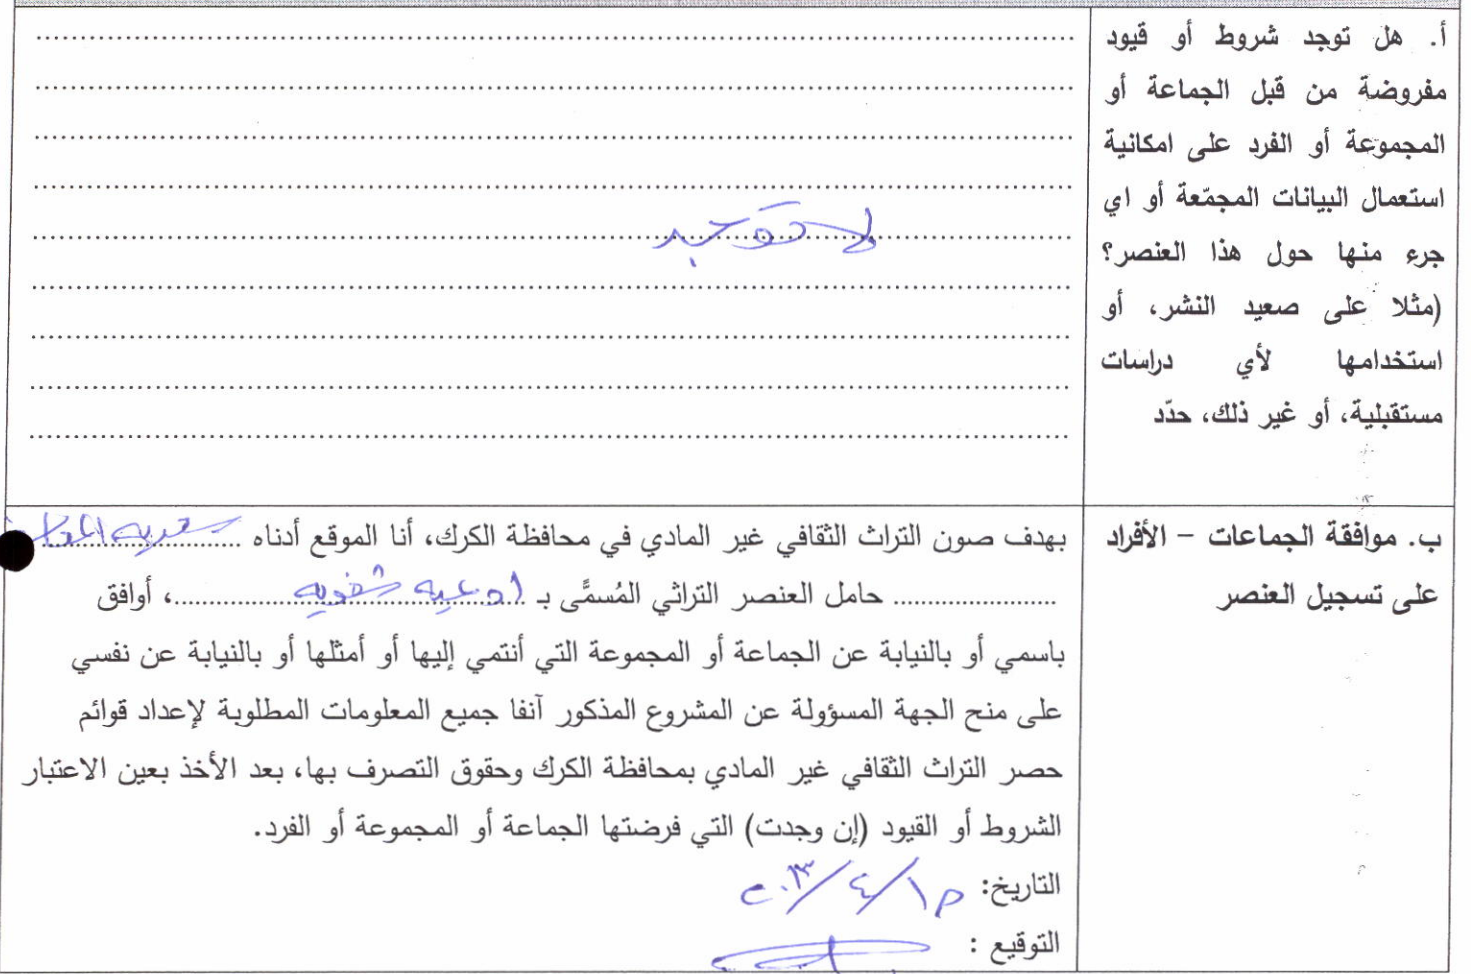 أ. هل توجد شروط أو قيود
مفروضة من قبل الجماعة أو
المجموعة أو الفرد على امكانية
استعمال البيانات المجمّعة أو اي
جرء منها حول هذا العنصر؟
(مثلا على صعيد النشر، أو
استخدامها لأي دراسات
مستقبلية، أو غير ذلك، حدّد
لا توجد
ب. موافقة الجماعات – الأفراد
على تسجيل العنصر
بهدف صون التراث الثقافي غير المادي في محافظة الكرك، أنا الموقع أدناه
حامل العنصر التراثي المُسمَّى بـ ادعيه شفويه، أوافق
باسمي أو بالنيابة عن الجماعة أو المجموعة التي أنتمي إليها أو أمثلها أو بالنيابة عن نفسي
على منح الجهة المسؤولة عن المشروع المذكور آنفا جميع المعلومات المطلوبة لإعداد قوائم
حصر التراث الثقافي غير المادي بمحافظة الكرك وحقوق التصرف بها، بعد الأخذ بعين الاعتبار
الشروط أو القيود (إن وجدت) التي فرضتها الجماعة أو المجموعة أو الفرد.
التاريخ:
التوقيع :